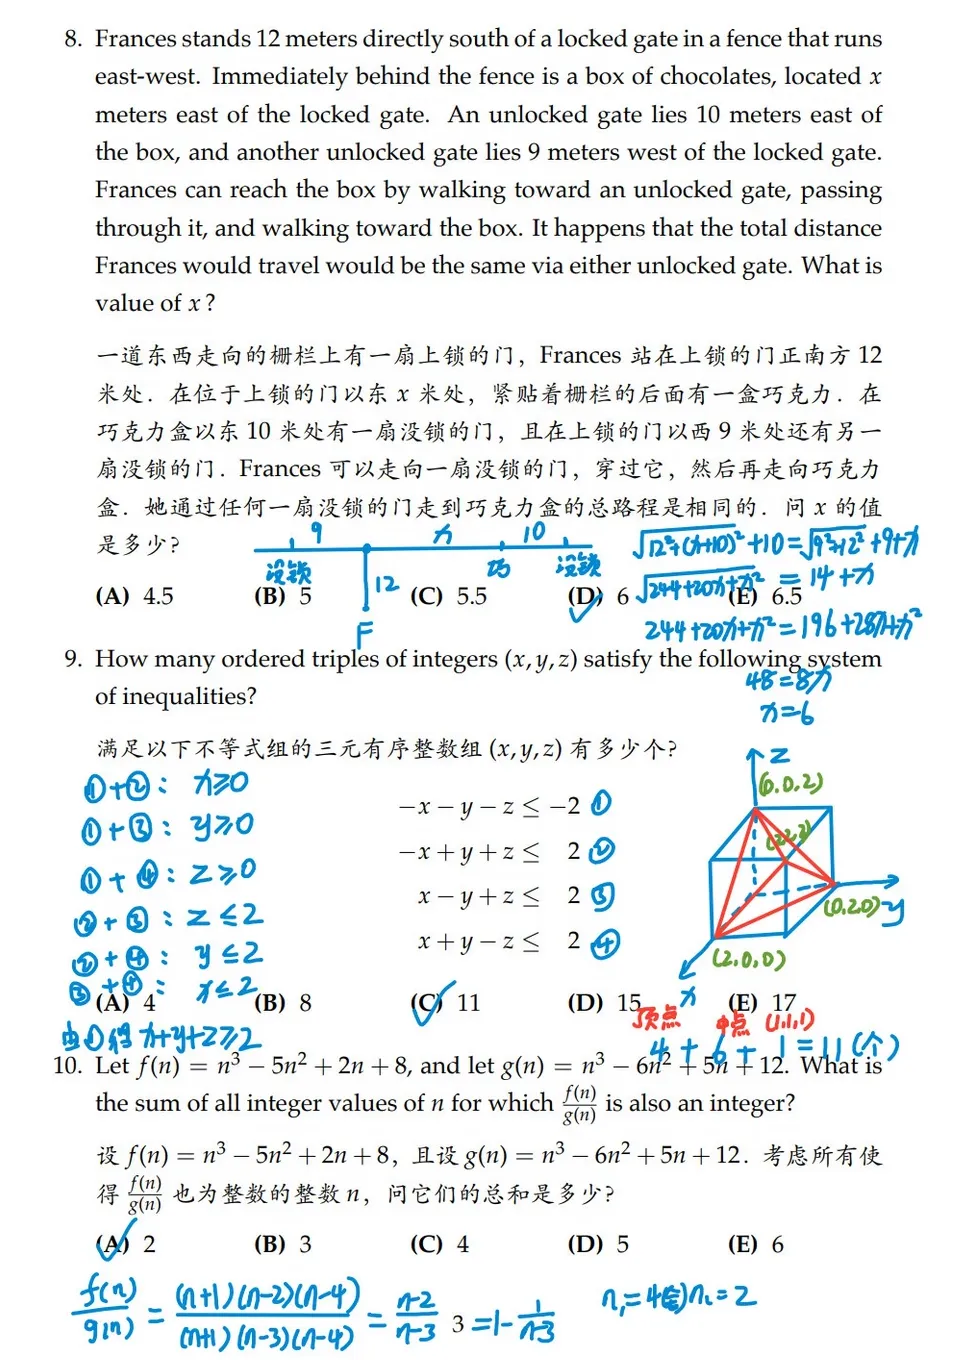 8. Frances stands 12 meters directly south of a locked gate in a fence that runs
east-west. Immediately behind the fence is a box of chocolates, located x
meters east of the locked gate. An unlocked gate lies 10 meters east of
the box, and another unlocked gate lies 9 meters west of the locked gate.
Frances can reach the box by walking toward an unlocked gate, passing
through it, and walking toward the box. It happens that the total distance
Frances would travel would be the same via either unlocked gate. What is
value of x?
一道东西走向的栅栏上有一扇上锁的门，Frances 站在上锁的门正南方 12
米处．在位于上锁的门以东 x 米处，紧贴着栅栏的后面有一盒巧克力．在
巧克力盒以东 10 米处有一扇没锁的门，且在上锁的门以西 9 米处还有另一
扇没锁的门．Frances 可以走向一扇没锁的门，穿过它，然后再走向巧克力
盒．她通过任何一扇没锁的门走到巧克力盒的总路程是相同的．问 x 的值
是多少？
9 x 10
没锁 12 巧 没锁
F
√12²+(x+10)² +10=√9²+12² +9+x
√244+20x+x² = 14+x
244+20x+x²=196+28x+x²
48=8x
x=6
(A) 4.5 (B) 5 (C) 5.5 (D) 6 (E) 6.5
9. How many ordered triples of integers (x, y, z) satisfy the following system
of inequalities?
满足以下不等式组的三元有序整数组 (x, y, z) 有多少个？
−x − y − z ≤ −2 ①
−x + y + z ≤ 2 ②
x − y + z ≤ 2 ③
x + y − z ≤ 2 ④
①+②: x≥0
①+③: y≥0
①+④: z≥0
②+③: z≤2
②+④: y≤2
③+④: x≤2
由①得 x+y+z≥2
z
(0,0,2)
(0,2,0) y
(2,0,0)
x
(A) 4 (B) 8 (C) 11 (D) 15 (E) 17
顶点 中点 (1,1,1)
4 + 6 + 1 = 11(个)
10. Let f(n) = n³ − 5n² + 2n + 8, and let g(n) = n³ − 6n² + 5n + 12. What is
the sum of all integer values of n for which f(n)/g(n) is also an integer?
设 f(n) = n³ − 5n² + 2n + 8，且设 g(n) = n³ − 6n² + 5n + 12．考虑所有使
得 f(n)/g(n) 也为整数的整数 n，问它们的总和是多少？
(A) 2 (B) 3 (C) 4 (D) 5 (E) 6
f(n)/g(n) = (n+1)(n-2)(n-4)/(n+1)(n-3)(n-4) = n-2/n-3 = 1-1/n-3
n₁=4(舍) n₂=2
3